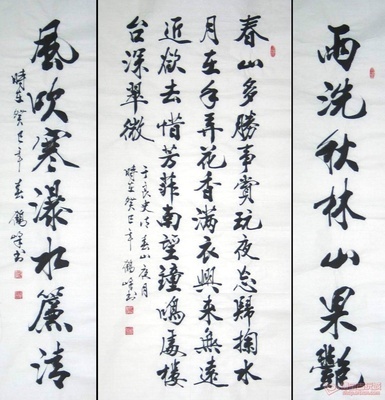 雨洗秋林山果豔
春山多勝事賞玩夜忘歸掬水
月在手弄花香滿衣興來無遠
近欲去惜芳菲南望鐘鳴處樓
台深翠微
于良史詩春山夜月
時在癸巳年 鶴峰书
風吹寒瀑水簾清
時在癸巳年春鶴峰书